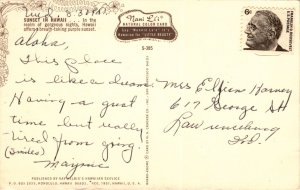 Wed, 8:30 P.M.
SUNSET IN HAWAII . . . In the
realm of gorgeous sights, Hawaii
offers breath-taking purple sunset.
Nani Li'i
NATURAL COLOR CARD
S-365
Aloha,
This place
is like a dream.
Having a great
time but really
tired from going.
(Smiles)
Maymie
Miss Effien Harney
617 George St
Lawrenceburg
Ind.
6¢
PUBLISHED BY NANI LI'I HAWAIIAN SERVICE
P. O. BOX HONOLULU, HAWAII HAWAII, U. S. A.